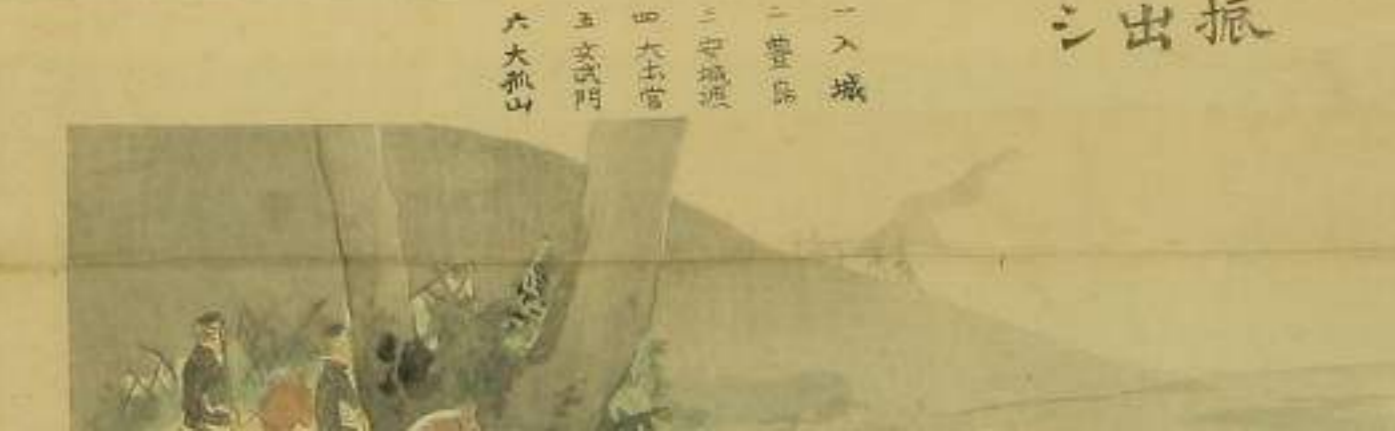 振出シ
一 入城
二 豊島
三 安城渡
四 大本営
五 玄武門
六 大孤山